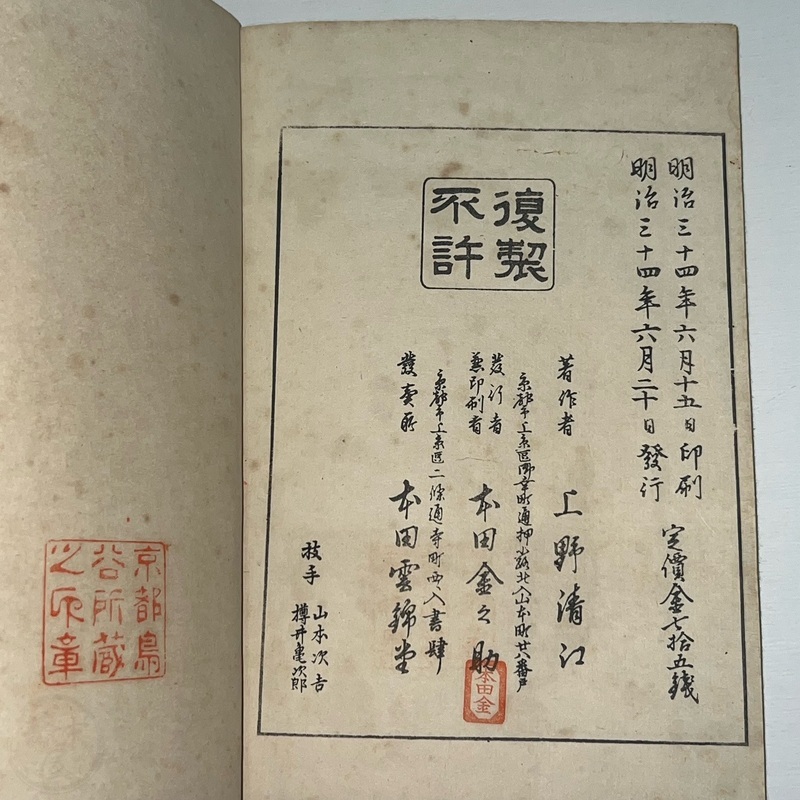 明治三十四年六月十五日印刷
明治三十四年六月二十日發行
定價金七拾五錢
復製
不許
著作者 上野清江
京都市上京區御幸町通押小路北入山本町廿八番戸
發行者
兼印刷者 本田金之助
京都市上京區二條通寺町西入書肆
發賣所 本田雲錦堂
技手 山本次吉
樽井亀次郎
本田金
京都鳥
公所蔵
之印章